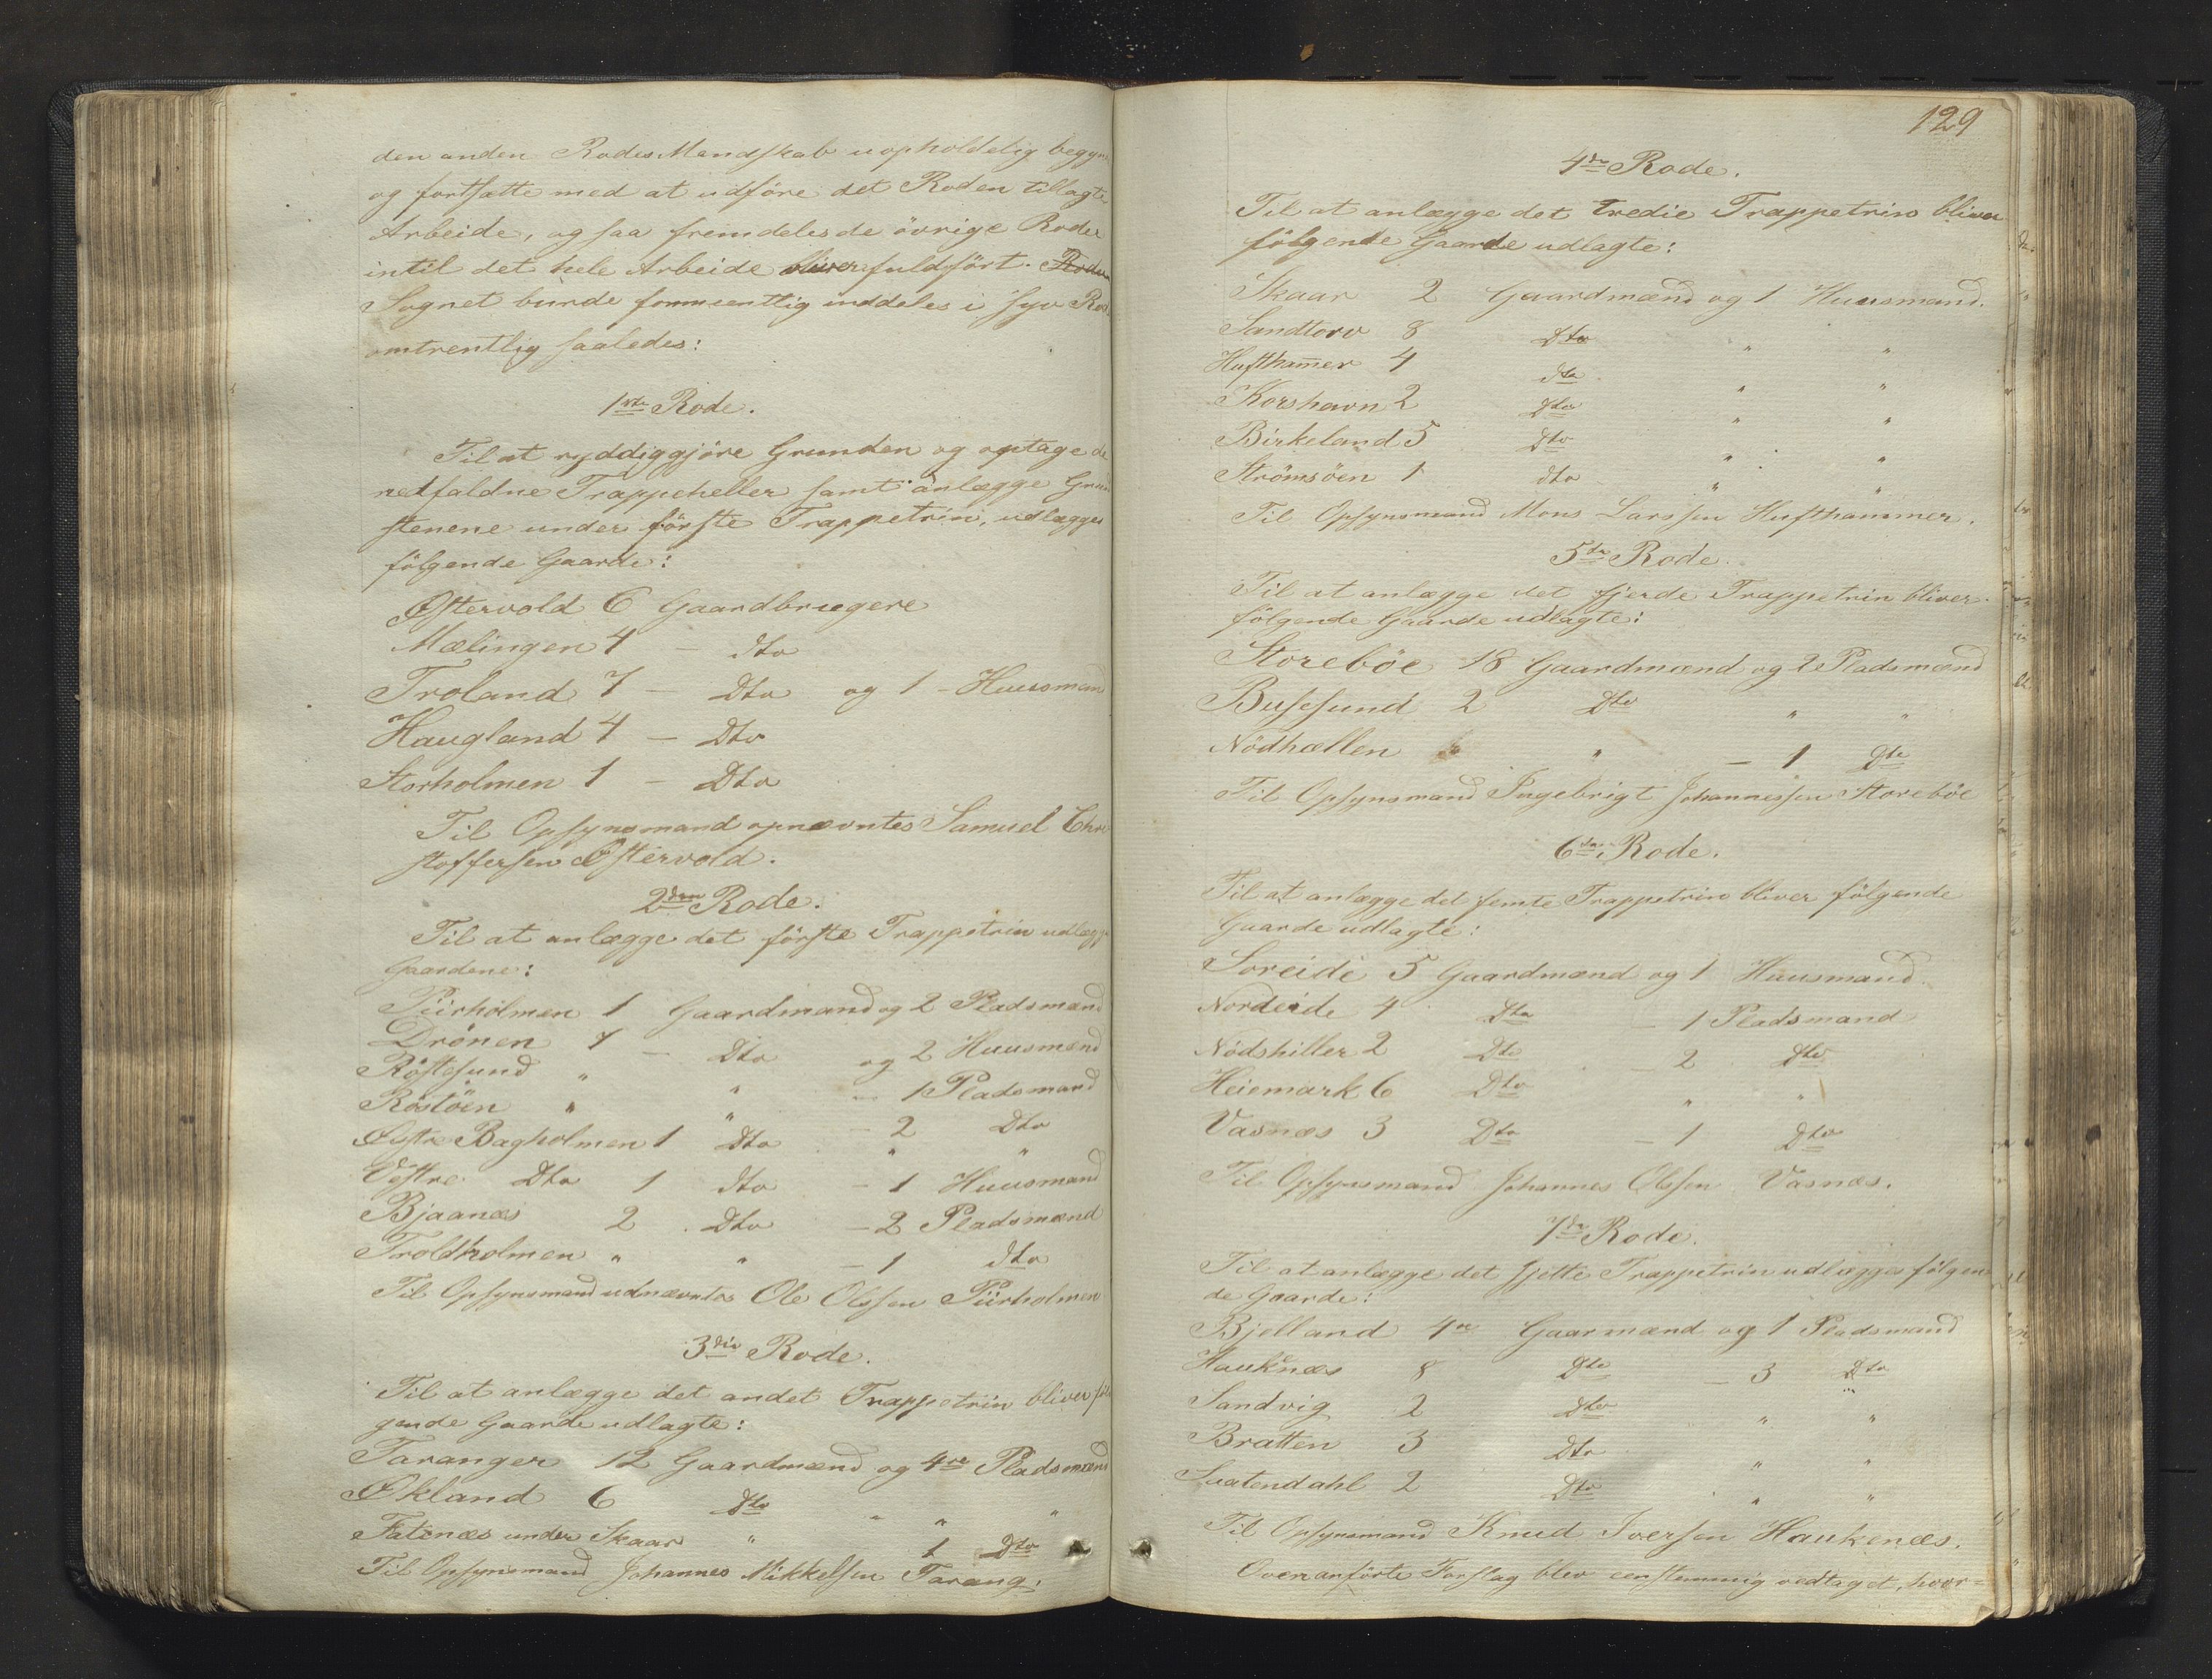 den anden Rodes Mandskab uopholdelig begyn
og fortsætte med at udføre det Roden tillagte
Arbeide, og saa fremdeles de øvrige Roder
intil det hele Arbeide bliver fuldført.
Sognet burde formeentlig inddeles i syv Rod
omtrentlig saaledes:
1ste Rode.
Til at ryddiggjøre Grunden og optage de
nedfaldne Trappeheller samt anlægge Grund
stenene under første Trappetrin, udlægges
følgende Gaarde:
Østervold 6 Gaardbrugere
Mælingen 4 – dto
Troland 7 – Dto og 1 – Huusmand
Haugland 4 – Dto
Storholmen 1 – Dto
Til Opsynsmand opnævntes Samuel Chri
stoffersen Østervold.
2den Rode.
Til at anlægge det første Trappetrin udlægg
Gaardene:
Piirholmen 1 Gaardmand og 2 Pladsmænd
Drønen 7 – Dto og 2 Huusmænd
Røstesund " " – 1 Pladsmand
Røstøen " " – 2 Dto
Østre Bagholmen 1 Dto " "
Vestre Dto 1 dto – 1 Huusmand
Bjaanæs 2 Dto – 2 Pladsmænd
Troldholmen " " – 1 dto
Til Opsynsmand udnævntes Ole Olssen Piirholmen
3die Rode.
Til at anlægge det andet Trappetrin bliver føl
gende Gaarde udlagte:
Taranger 12 Gaardmænd og 4re Pladsmænd
Økland 6 Dto " " "
Fatenæs under Skaar " 1 Dto
Til Opsynsmand Johannes Mikkelsen Tarang.
129
4de Rode.
Til at anlægge det tredie Trappetrin bliver
følgende Gaarde udlagte:
Skaar 2 Gaardmænd og 1 Huusmand.
Sandtorv 8 Dto " "
Hufthamer 4 dto " "
Korshavn 2 Dto " "
Birkeland 5 Dto " "
Strömsöen 1 dto " "
Til Opsynsmand Mons Larssen Hufthammer.
5te Rode.
Til at anlægge det fjerde Trappetrin bliver
følgende Gaarde udlagte:
Storebøe 18 Gaardmænd og 2 Pladsmænd
Busesund 2 Dto " "
Nödhællen " – 1 Dto
Til Opsynsmand Ingebrigt Johannessen Storebøe
6te Rode.
Til at anlægge det femte Trappetrin bliver følgende
Gaarde udlagte:
Soreide 5 Gaardmænd og 1 Huusmand.
Nordeide 4 Dto – 1 Pladsmand
Nødshiller 2 Dto – 2 Dto
Heiemark 6 Dto " "
Vasnæs 3 Dto – 1 Dto
Til Opsynsmand Johannes Olssen Vasnæs.
7de Rode.
Til at anlægge det sjette Trappetrin udlægges følgen
de Gaarde:
Bjelland 4re Gaarmænd og 1 Pladsmand
Hauknæs 8 Dto – 3 Dto
Sandvig 2 Dto " "
Bratten 3 Dto " "
Suatendahl 2 Dto " "
Til Opsynsmand Knud Iversen Haukenæs.
Ovenanførte Forslag blev eenstemmig vedtaget, hvor=